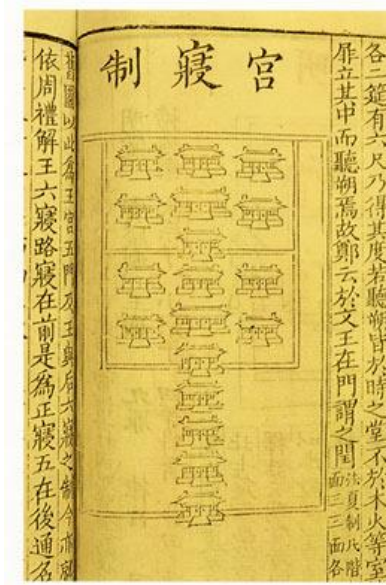 各二筵有六尺乃得其度若聽朔皆於時之堂不於木火等室
扉立其中而聽朔焉故鄭云於文王在門謂之閏
夏制
面三三面各
宫寢制
舊圖以此為王宫五門及王與后六寢之制今亦
依周禮解王六寢路寢在前是為正寢五在後通名